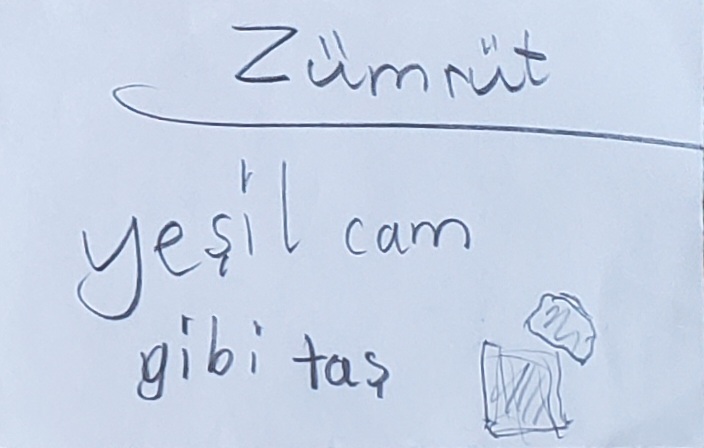 Zümrüt
yeşil cam
gibi taş